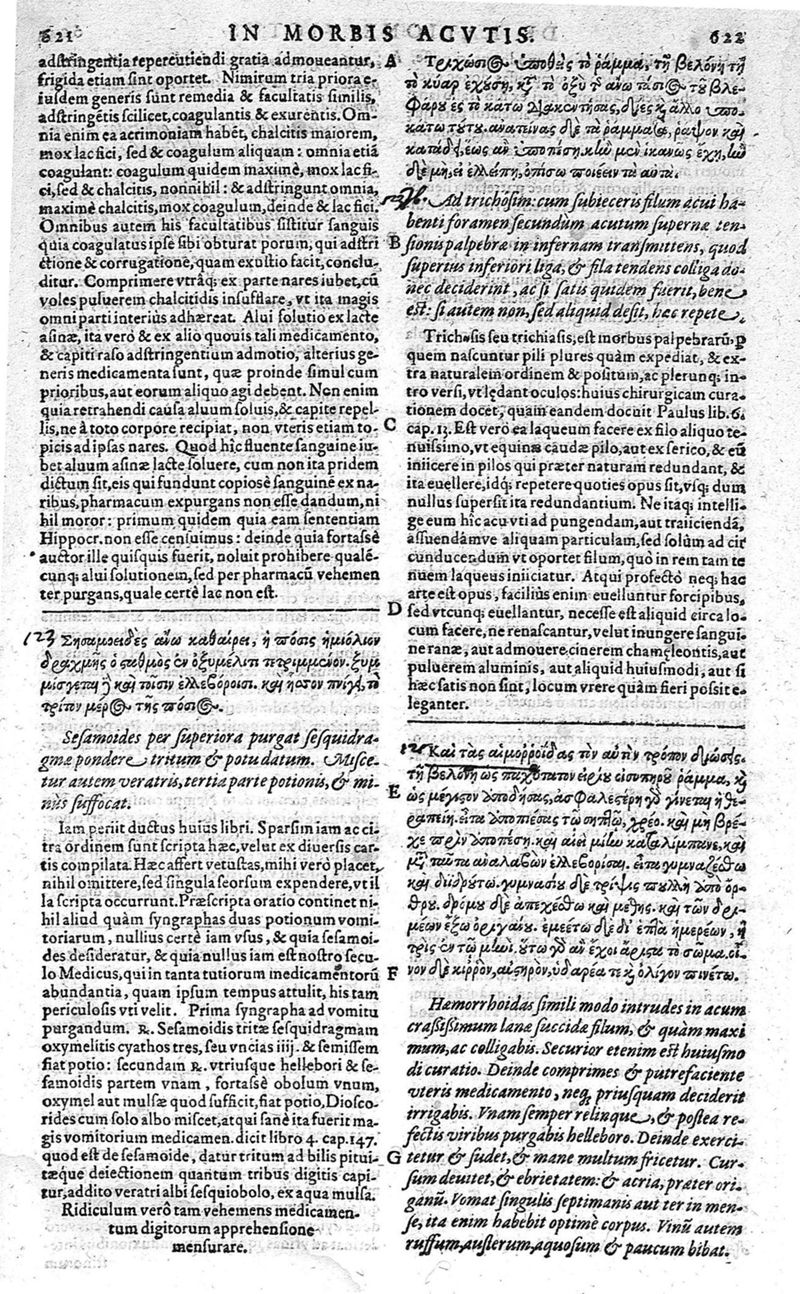 621 IN MORBIS ACVTIS. 622
adstringentia repercutiendi gratia admoueantur,
frigida etiam sint oportet. Nimirum tria priora e-
iusdem generis sunt remedia & facultatis similis,
adstringētis scilicet, coagulantis & exurentis. Om-
nia enim ea acrimoniam habēt, chalcitis maiorem,
mox lac fici, sed & coagulum aliquam: omnia etiā
coagulant: coagulum quidem maximè, mox lac fi-
ci, sed & chalcitis, nonnihil: & adstringunt omnia,
maximè chalcitis, mox coagulum, deinde & lac fici.
Omnibus autem his facultatibus sistitur sanguis
quia coagulatus ipse sibi obturat porum, qui adstri
ctione & corrugatione, quam exustio facit, conclu-
ditur. Comprimere vtrāq; ex parte nares iubet, cū
voles puluerem chalcitidis insufflare, vt ita magis
omni parti interius adhæreat. Alui solutio ex lacte
asinæ, ita verò & ex alio quouis tali medicamento,
& capiti raso adstringentium admotio, alterius ge-
neris medicamenta sunt, quæ proinde simul cum
prioribus, aut eorum aliquo agi debent. Non enim
quia retrahendi causa aluum soluis, & capite repel-
lis, ne à toto corpore recipiat, non vteris etiam to-
picis ad ipsas nares. Quod hîc fluente sanguine iu-
bet aluum asinæ lacte soluere, cum non ita pridem
dictum sit, eis qui fundunt copiosè sanguinē ex na-
ribus, pharmacum expurgans non esse dandum, ni
hil moror: primum quidem quia eam sententiam
Hippocr. non esse censuimus: deinde quia fortassè
auctor ille quisquis fuerit, noluit prohibere qualē-
cunq; alui solutionem, sed per pharmacū vehemen
ter purgans, quale certè lac non est.
123 Σησαμοειδὲς ἄνω καθαίρει, ἡ πόσις ἡμιόλιον
δραχμῆς ὁ σταθμὸς ἐν ὀξυμέλιτι τετριμμένον. ξυμ
μίσγεται ἢ καὶ τοῖσιν ἐλλεβόροισι. καὶ ἧσσον πνίγει, τὸ
τρίτον μέρος τῆς πόσιος.
Sesamoides per superiora purgat sesquidra-
gmæ pondere, tritum & potu datum. Misce-
tur autem veratris, tertia parte potionis, & mi-
nùs suffocat.
Iam periit ductus huius libri. Sparsim iam ac ci-
tra ordinem sunt scripta hæc, velut ex diuersis car-
tis compilata. Hæc affert vetustas, mihi verò placet,
nihil omittere, sed singula seorsum expendere, vt il
la scripta occurrunt. Præscripta oratio continet ni-
hil aliud quàm syngraphas duas potionum vomi-
toriarum, nullius certè iam vsus, & quia sesamoi-
des desideratur, & quia nullus iam est nostro secu-
lo Medicus, qui in tanta tutiorum medicamētorū
abundantia, quam ipsum tempus attulit, his tam
periculosis vti velit. Prima syngrapha ad vomitu
purgandum. ℞. Sesamoidis tritæ sesquidragmam
oxymelitis cyathos tres, seu vncias iiij. & semissem
fiat potio: secundam ℞. vtriusque hellebori & se-
samoidis partem vnam, fortassè obolum vnum,
oxymel aut mulsæ quod sufficit, fiat potio, Diosco-
rides cum solo albo miscet, atqui sanè ita fuerit ma-
gis vomitorium medicamen. dicit libro 4. cap. 147.
quod est de sesamoide, datur tritum ad bilis pitui-
tæque deiectionem quantum tribus digitis capi-
tur, addito veratri albi sesquiobolo, ex aqua mulsa.
Ridiculum verò tam vehemens medicamen-
tum digitorum apprehensione
mensurare.
A
B
C
D
E
F
G
Τριχώσιος ὑποθεὶς τὸ ῥάμμα, τῇ βελόνῃ τῇ
τὸ κύαρ ἐχούσῃ, κατὰ τὸ ὀξὺ τῆς ἄνω τάσιος τοῦ βλε-
φάρου ἐς τὸ κάτω διακεντήσας, δίες καὶ ἄλλο ὑπο-
κάτω τούτου. ἀνατείνας δὲ τὰ ῥάμματα, ῥάψον καὶ
κατάδει, ἕως ἂν ὑποπέσῃ. κἢν μὲν ἱκανῶς ἔχῃ, ἢν
δὲ μὴ, εἰ ἐλλείπῃ, ὀπίσω ποιέειν τὰ αὐτά.
Ad trichosim: cum subieceris filum acui ha-
benti foramen secundùm acutum supernæ ten-
sionis palpebræ in infernam transmittens, quod
superius inferiori liga, & fila tendens colliga do-
nec deciderint, ac si satis quidem fuerit, bene
est: si autem non, sed aliquid desit, hæc repete.
Trichosis seu trichiasis, est morbus palpebrarū, p
quem nascuntur pili plures quàm expediat, & ex-
tra naturalem ordinem & positum, ac plerunq; in-
tro versi, vt lędant oculos: huius chirurgicam cura-
tionem docet, quam eandem docuit Paulus lib. 6.
cap. 13. Est verò ea laqueum facere ex filo aliquo te-
nuissimo, vt equinæ caudæ pilo, aut ex serico, & eū
iniicere in pilos qui præter naturam redundant, &
ita euellere, idq; repetere quoties opus sit, vsq; dum
nullus supersit ita redundantium. Ne itaq; intelli-
ge eum hîc acu vti ad pungendam, aut traiiciendā,
assuendāmve aliquam particulam, sed solùm ad cir
cunducendum vt oportet filum, quò in rem tam te
nuem laqueus iniiciatur. Atqui profectò neq; hac
arte est opus, facilius enim euelluntur forcipibus,
sed vtcunq; euellantur, necesse est aliquid circa lo-
cum facere, ne renascantur, velut inungere sangui-
ne ranæ, aut admouere cinerem chamęleontis, aut
puluerem aluminis, aut aliquid huiusmodi, aut si
hæc satis non sint, locum vrere quàm fieri possit e-
leganter.
Καὶ τὰς αἱμοῤῥοΐδας τὸν αὐτὸν τρόπον διώσεις.
τῇ βελόνῃ ὡς παχύτατον εἰρίου οἰσυπηροῦ ῥάμμα, καὶ
ὡς μέγιστον ἀποδήσας, ἀσφαλεστέρη γὰρ γίνεται ἡ θε-
ραπείη. εἶτα ἀποπιέσας τῷ σηπτῷ, χρέο. καὶ μὴ βρέ-
χε πρὶν ἀποπέσῃ. καὶ αἰεὶ μίαν καταλίμπανε, καὶ
μετὰ ταῦτα ἀναλαβὼν ἐλλεβόρισαι. εἶτα γυμναζέσθω
καὶ ἀφιδρούτω. γυμνασίου δὲ τρίψις πολλὴ ἀπὸ ὄρ-
θρου. δρόμου δὲ ἀπεχέσθω καὶ μέθης. καὶ τῶν δρι-
μέων ἔξω ὀργάνου. ἐμεέτω δὲ δι᾽ ἑπτὰ ἡμερέων, ἢ
τρὶς ἐν τῷ μηνὶ. οὕτω γὰρ ἂν ἔχοι ἄριστα τὸ σῶμα. οἶ-
νον δὲ κιῤῥὸν, αὐστηρὸν, ὑδαρέα τε καὶ ὀλίγον πινέτω.
Hæmorrhoidas simili modo intrudes in acum
crassissimum lanæ succidæ filum, & quàm maxi
mum, ac colligabis. Securior etenim est huiusmo
di curatio. Deinde comprimes & putrefaciente
vteris medicamento, neq; priusquam deciderit
irrigabis. Vnam semper relinque, & postea re-
fectis viribus purgabis helleboro. Deinde exerci-
tetur & sudet, & mane multum fricetur. Cur-
sum deuitet, & ebrietatem: & acria, præter ori-
ganū. Vomat singulis septimanis aut ter in men-
se, ita enim habebit optimè corpus. Vinū autem
ruffum, austerum, aquosum & paucum bibat.